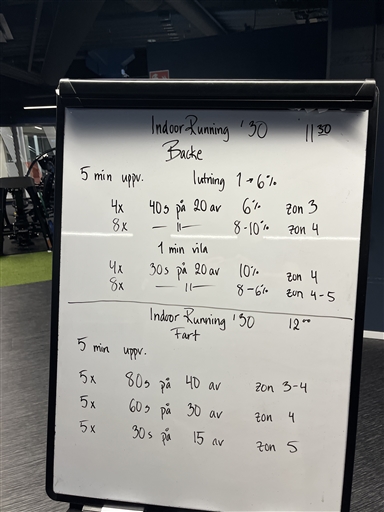 Indoor Running '30 11³⁰
Backe
5 min uppv. lutning 1→6%
4x 40s på 20 av 6% zon 3
8x —〃— 8-10% zon 4
1 min vila
4x 30s på 20 av 10% zon 4
8x —〃— 8-6% zon 4-5
Indoor Running '30 12⁰⁰
Fart
5 min uppv.
5x 80s på 40 av zon 3-4
5x 60s på 30 av zon 4
5x 30s på 15 av zon 5